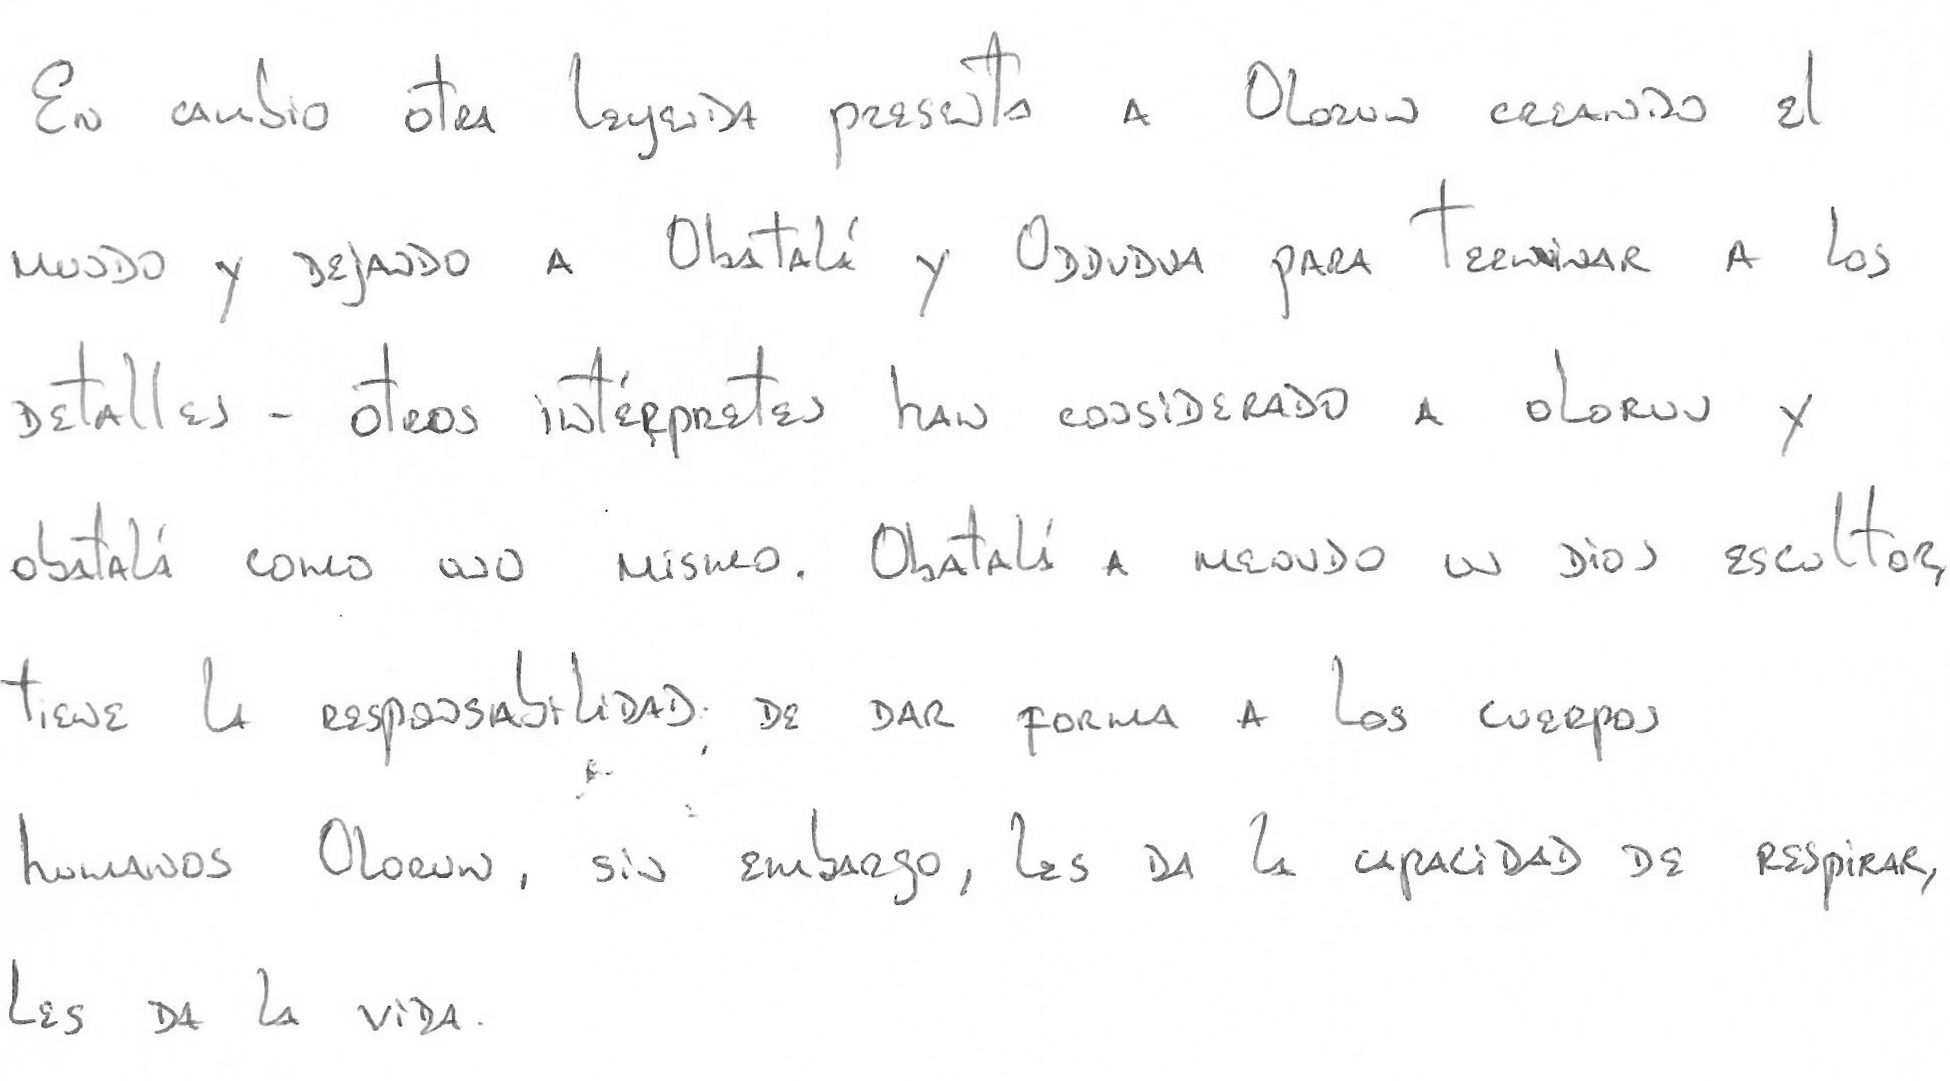 En cambio otra leyenda presenta a Olorun creando el
mundo y dejando a Obatalá y Oddudua para terminar a los
detalles - otros intérpretes han considerado a olorun y
obatalá como uno mismo. Obatalá a menudo un dios escultor,
tiene la responsabilidad, de dar forma a los cuerpos
humanos Olorun, sin embargo, les da la capacidad de respirar,
les da la vida.